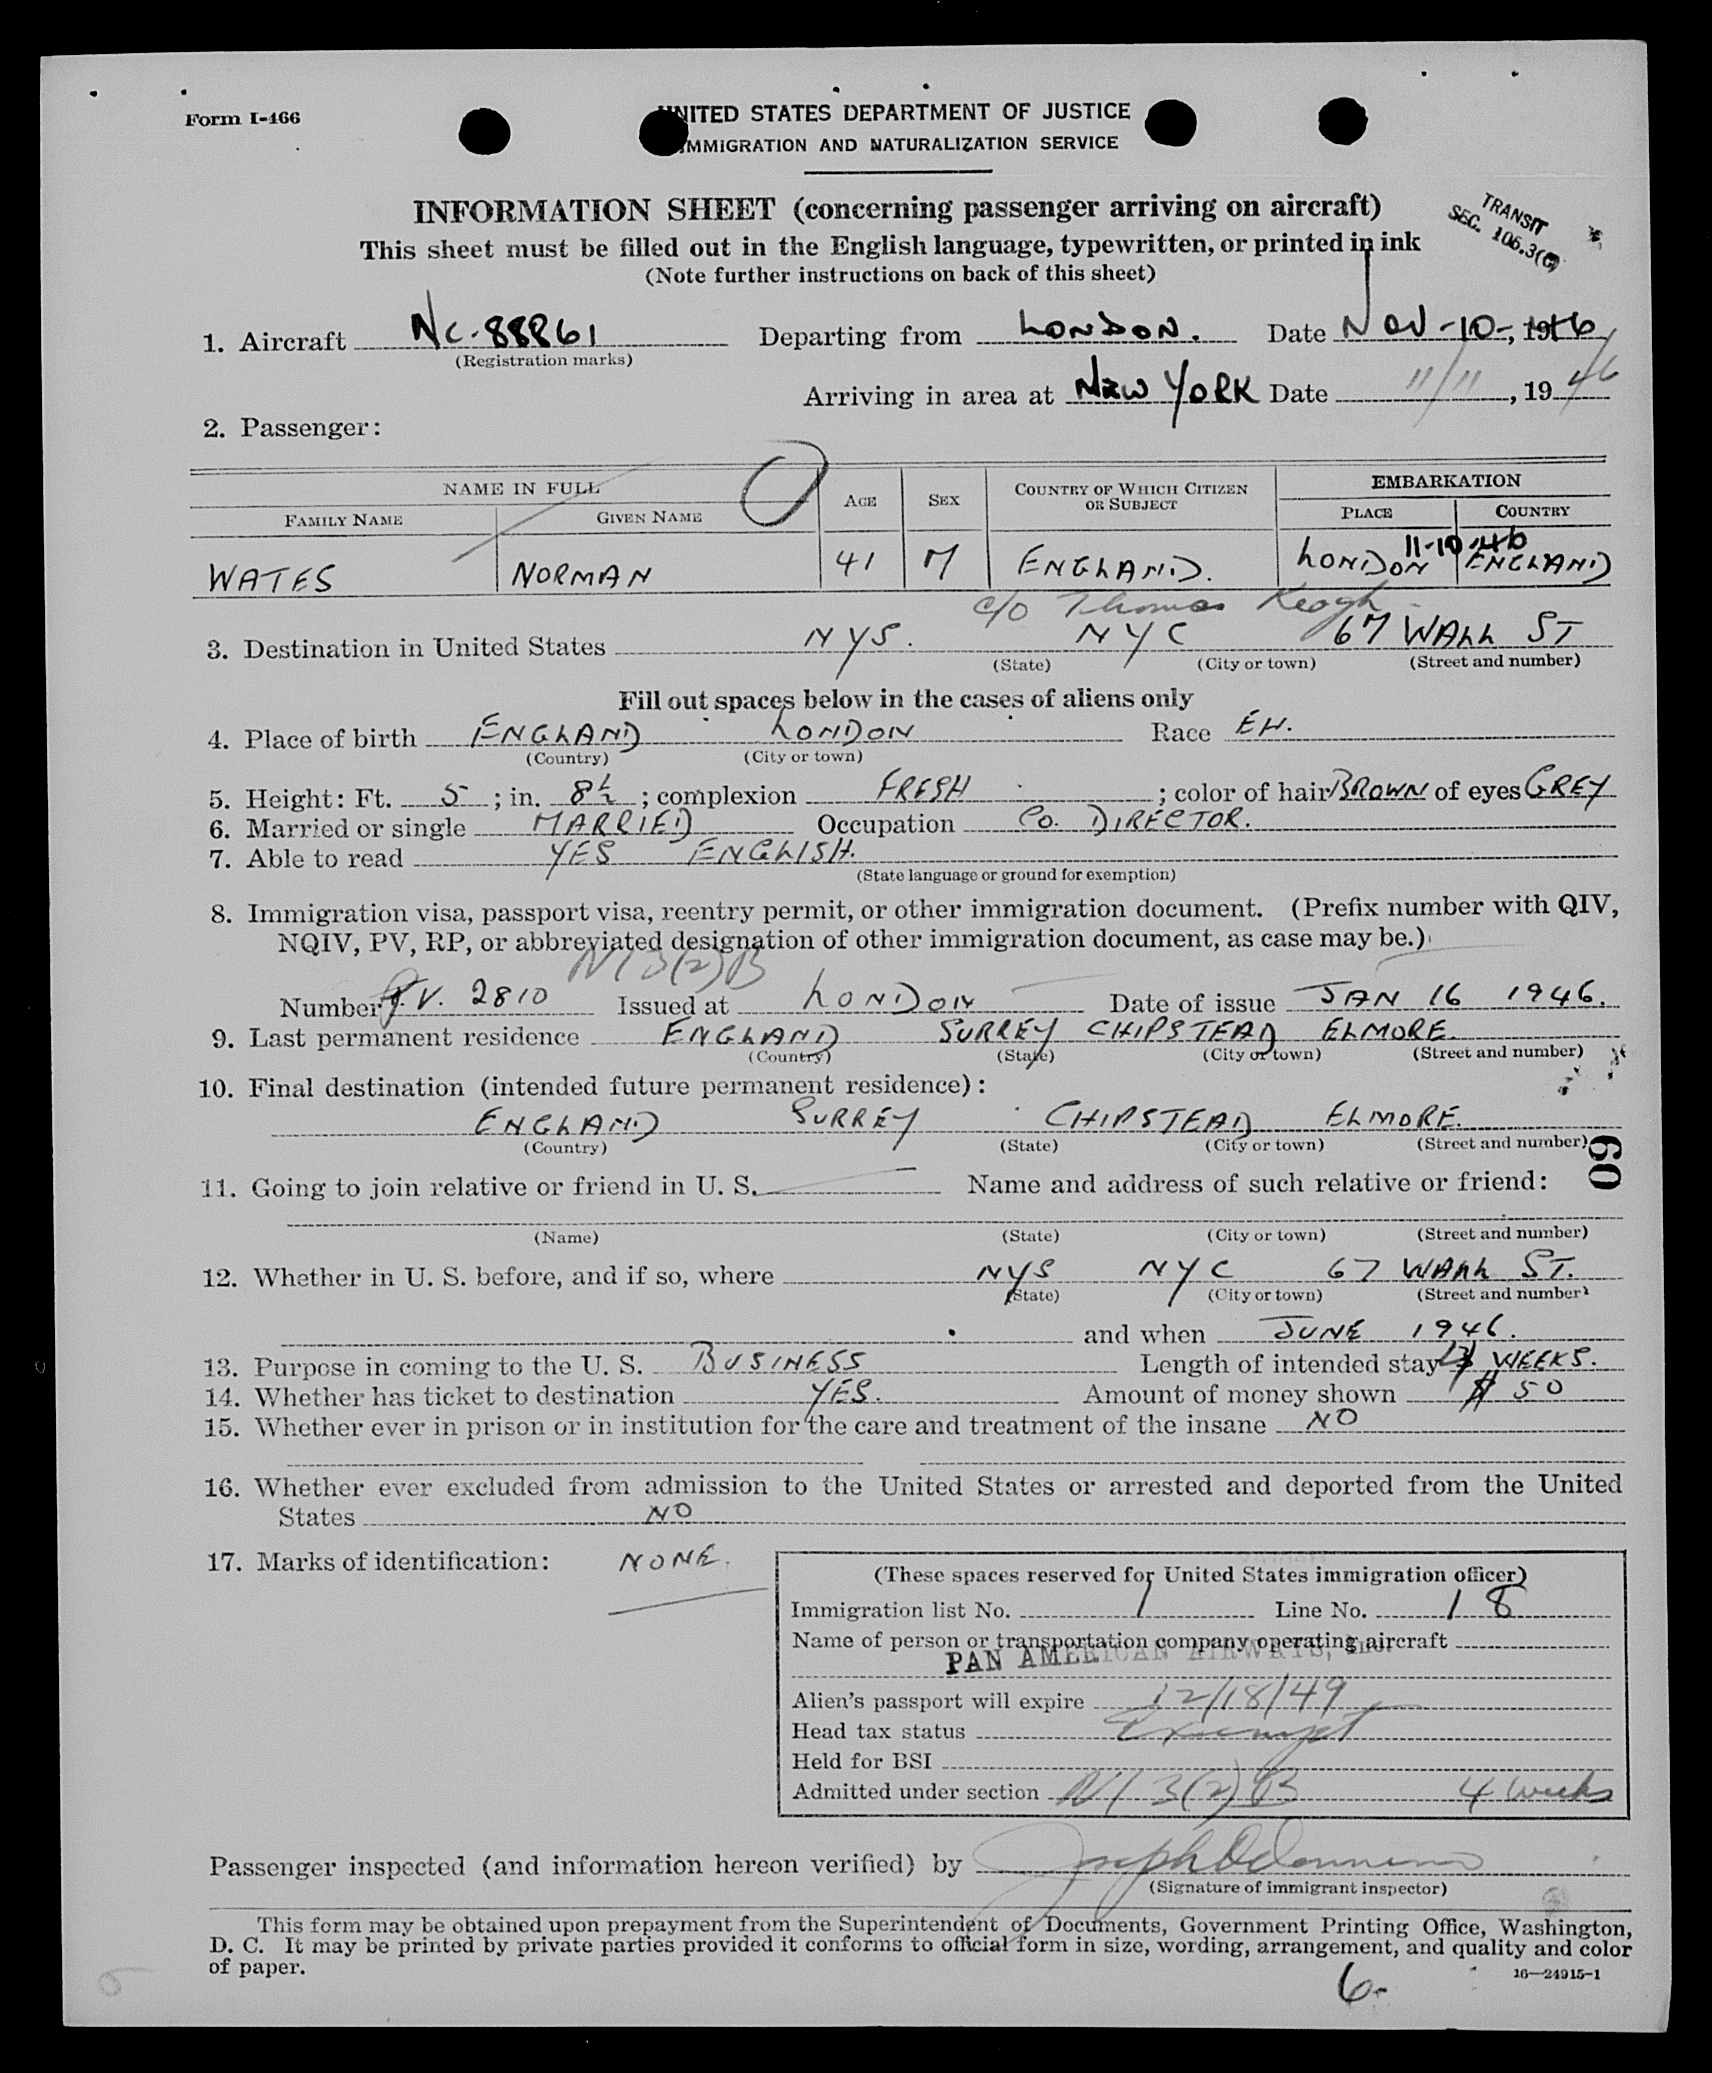 Form I-466
UNITED STATES DEPARTMENT OF JUSTICE
IMMIGRATION AND NATURALIZATION SERVICE
INFORMATION SHEET (concerning passenger arriving on aircraft)
TRANSIT
SEC. 106.3(
This sheet must be filled out in the English language, typewritten, or printed in ink
(Note further instructions on back of this sheet)
1. Aircraft NC-88861 Departing from LONDON. Date NOV-10-, 1946
(Registration marks)
Arriving in area at NEW YORK Date 11/11, 1946
2. Passenger:
NAME IN FULL AGE SEX COUNTRY OF WHICH CITIZEN OR SUBJECT EMBARKATION
FAMILY NAME GIVEN NAME PLACE COUNTRY
11-10-46
WATES NORMAN 41 M ENGLAND. LONDON ENGLAND
c/o Thomas Keogh
3. Destination in United States NYS. NYC 67 WALL ST
(State) (City or town) (Street and number)
Fill out spaces below in the cases of aliens only
4. Place of birth ENGLAND LONDON Race EH.
(Country) (City or town)
5. Height: Ft. 5 ; in. 8½ ; complexion FRESH ; color of hair BROWN of eyes GREY
6. Married or single MARRIED Occupation CO. DIRECTOR.
7. Able to read YES ENGLISH.
(State language or ground for exemption)
8. Immigration visa, passport visa, reentry permit, or other immigration document. (Prefix number with QIV,
NQIV, PV, RP, or abbreviated designation of other immigration document, as case may be.)
NI 3(2)B
Number PV. 2810 Issued at LONDON Date of issue JAN 16 1946.
9. Last permanent residence ENGLAND SURREY CHIPSTEAD ELMORE.
(Country) (State) (City or town) (Street and number)
10. Final destination (intended future permanent residence):
ENGLAND SURREY CHIPSTEAD ELMORE.
(Country) (State) (City or town) (Street and number)
60
11. Going to join relative or friend in U. S. Name and address of such relative or friend:
(Name) (State) (City or town) (Street and number)
12. Whether in U. S. before, and if so, where NYS NYC 67 WALL ST.
(State) (City or town) (Street and number)
and when JUNE 1946.
13. Purpose in coming to the U. S. BUSINESS Length of intended stay WEEKS.
14. Whether has ticket to destination YES. Amount of money shown $ 50
15. Whether ever in prison or in institution for the care and treatment of the insane NO
16. Whether ever excluded from admission to the United States or arrested and deported from the United
States NO
17. Marks of identification: NONE.
(These spaces reserved for United States immigration officer)
Immigration list No. 1 Line No. 18
Name of person or transportation company operating aircraft
PAN AMERICAN AIRWAYS, Inc.
Alien's passport will expire 12/18/49
Head tax status Exempt
Held for BSI
Admitted under section NI 3(2) B 4 weeks
Passenger inspected (and information hereon verified) by
(Signature of immigrant inspector)
This form may be obtained upon prepayment from the Superintendent of Documents, Government Printing Office, Washington,
D. C. It may be printed by private parties provided it conforms to official form in size, wording, arrangement, and quality and color
of paper.
16—24915-1
6-